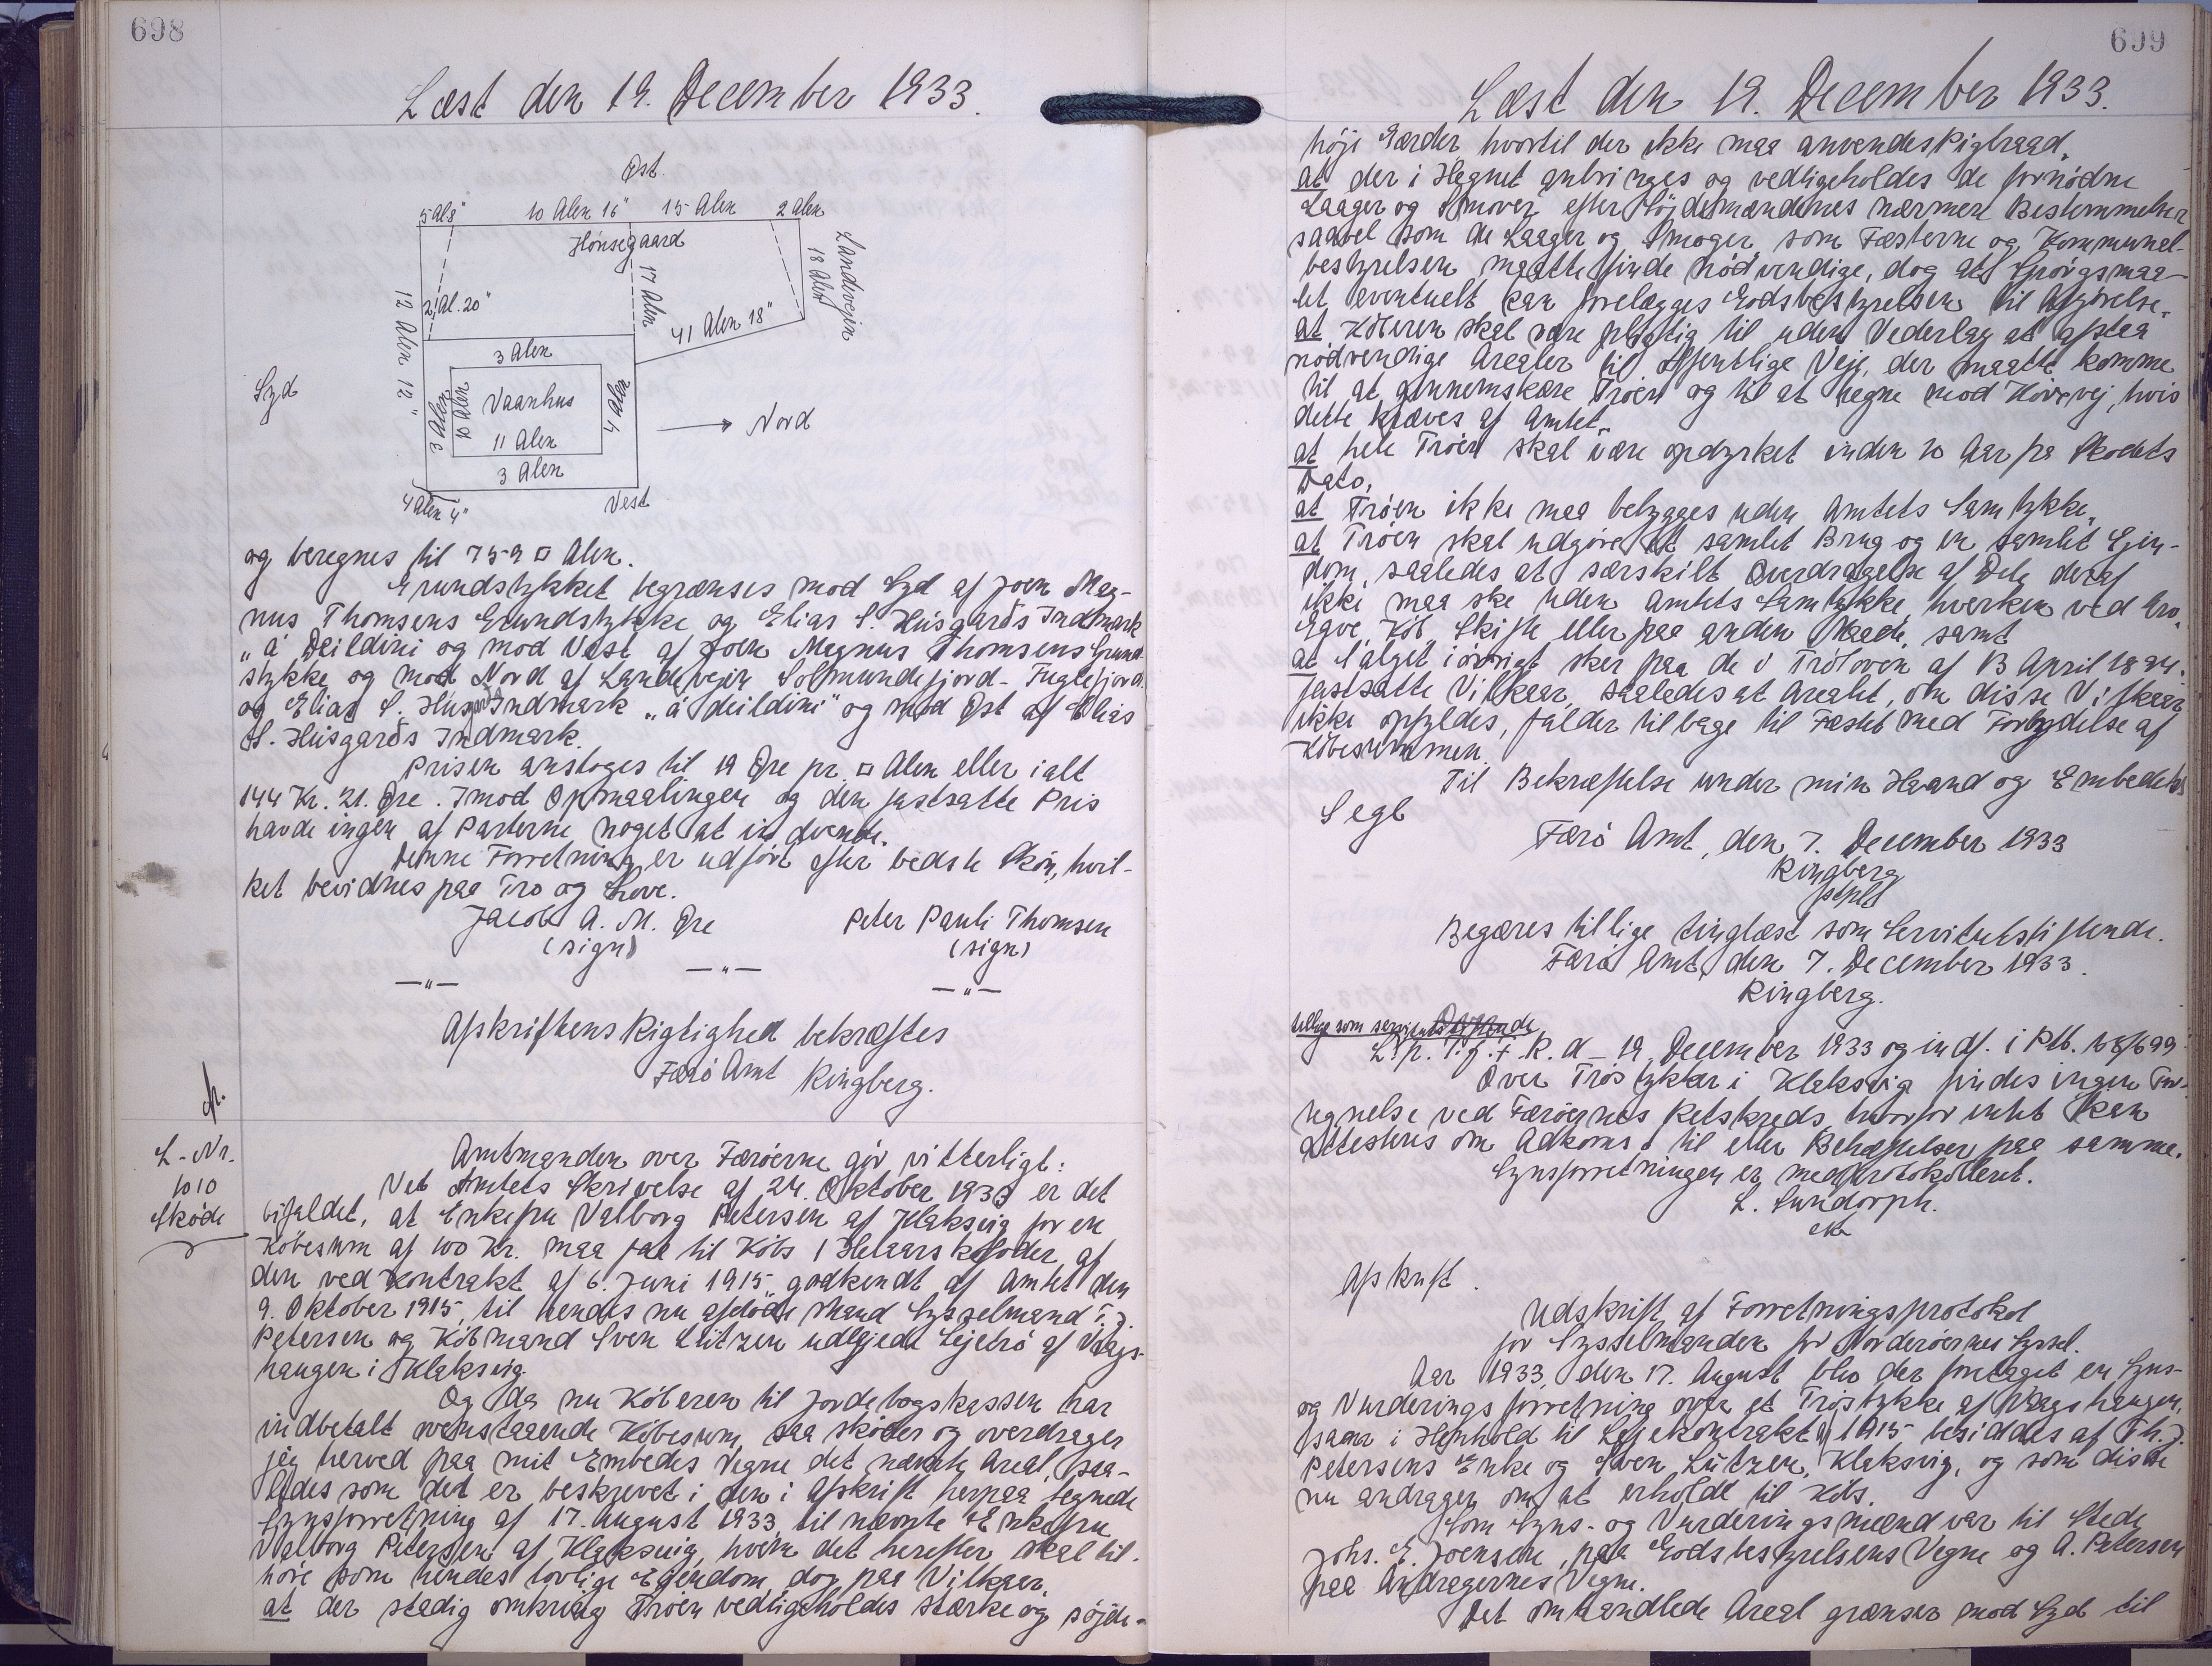 698
Læst den 19. December 1933.
Øst.
5 Al 8"
10 Alen 16"
15 Alen
2 Alen
Hönsegaard
Landevejin
18 Alen
17 Alen
2 Al. 20"
12 Alen 12"
41 Alen 18"
3 Alen
Syd
3 Alen
10 Alen
Vaanhus
4 Alen
11 Alen
Nord
3 Alen
4 Alen 4"
Vest
og beregnes til 759 □ Alen.
Grundstykket begrænses mod Syd af Joen Mag-
nus Thomsens Grundstykke og Elias S. Húsgarðs Indmark
„á Deildini og mod Vest af Joen Magnus Thomsens Grund-
stykke og mod Nord af Landevejin Solmundefjord - Fuglefjord
og Elias S. Húsgarðs Indmark „á deildini" og mod Øst af Elias
S. Húsgarðs Indmark.
Prisen ansloges til 19 Øre pr. □ Alen eller ialt
144 Kr. 21. Øre. Imod Opmaalingen og den fastsatte Pris
havde ingen af Parterne noget at indvende.
Denne Forretning er udført efter bedste Skön, hvil-
ket bevidnes paa Tro og Love.
Jacob A. M. Øre
Peter Pauli Thomsen
(sign)
(sign)
—"—
—"—
—"—
Afskriftens Rigtighed bekræftes
Færö Amt Ringberg.
L-Nr.
1010
Sköde
Amtmanden over Færöerne gör vitterligt:
Ved Amtets Skrivelse af 24. Oktober 1933 er det
bifaldet, at Enkefru Valborg Petersen af Klaksvig for en
Köbesum af 100 Kr. maa faa til Köbs 1 Helaarskofoder af
den ved Kontrakt af 6. Juni 1915, godkendt af Amtet den
9. Oktober 1915, til hendes nu afdöde Mand Sysselmand T. J.
Petersen og Köbmand Sven Lützen udlejede Lejetrö af Vaags-
haugen i Klaksvig.
Og da nu Köberen til Jordebogskassen har
indbetalt ovenstaaende Köbesum, saa sköder og overdrager
jeg herved paa mit Embedes Vegne det nævnte Areal, saa-
ledes som det er beskrevet i den i Afskrift herpaa tegnede
Synsforretning af 17. August 1933, til nævnte Enkefru
Valborg Petersen af Klaksvig, hvem det herefter skal til-
höre som hendes lovlige Ejendom, dog paa Vilkaar,
at der stadig omkring Tröen vedligeholdes stærke og söjde-
699
Læst den 19. December 1933.
höje Gærder hvortil der ikke maa anvendes Pigtraad,
at der i Hegnet anbringes og vedligeholdes de fornödne
Laager og Smover efter Söjdemændenes nærmere Bestemmelser
saavel som de Laager og Smoger, som Fæsterne og Kommunal-
bestyrelsen maatte finde nödvendige, dog at Spörgsmaa-
let eventuelt kan forelægges Godsbestyrelsen til Afgörelse,
at Köberen skal være pligtig til uden Vederlag at afstaa
nödvendige Arealer til offentlige Veje, der maatte komme
til at gennemskære Tröen og til at hegne mod Körevej, hvis
dette kræves af Amtet,
at hele Tröen skal være opdyrket inden 10 Aar fra Skødets
Dato,
at Tröen ikke maa bebygges uden Amtets Samtykke,
at Tröen skal udgöre et samlet Brug og en samlet Ejen-
dom, saaledes at særskilt Overdragelse af Dele deraf
ikke maa ske uden Amtets Samtykke, hverken ved Arv,
Gave, Köb, Skifte eller paa anden Maade, samt
at Salget iövrigt sker paa de i Tröloven af 13 April 1894.
fastsatte Vilkaar, saaledes at Arealet, om disse Vilkaar
ikke opfyldes, falder tilbage til Fæstet med Forbrydelse af
Köbesummen.
Til Bekræftelse under min Haand og Embedets
Segl
Færö Amt, den 7. December 1933
Ringberg
Begæres tillige tinglæst som Servitutstiftende.
Færö Amt, den 7. December 1933.
Ringberg.
tillige som servitutstiftende
L. p. T. f. F. R. d - 19. December 1933 og indf. i Ptb. 68/699
Over Tröstykker i Klaksvig findes ingen For-
tegnelse ved Færöernes Retskreds, hvorfor intet kan
attesteres om Adkomst til eller Behæftelser paa samme.
Synsforretningen er medprotokolleret.
L. Sundorph.
Afskrift.
Udskrift af Forretningsprotokol
for Sysselmanden for Norderöernes Syssel.
Aar 1933, den 17. August blev der foretaget en Syns-
og Vurderingsforretning over et Tröstykke af Vaagshaugen,
som i Henhold til Lejekontrakt af 1915 besiddes af Th. J.
Petersens Enke og Sven Lützen, Klaksvig, og som disse
nu andrager om at erholde til Köbs.
Som Syns- og Vurderingsmænd var til Stede
Johs. E. Joensen, paa Godsbestyrelsens Vegne og A. Petersen
paa Andragernes Vegne.
Det omhandlede Areal grænser mod Syd til